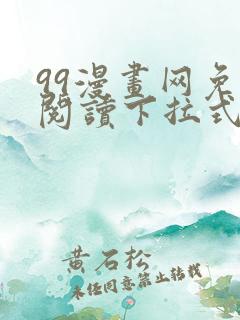 99漫畫网免
閱讀下拉式
黄石松
未经同意禁止转载